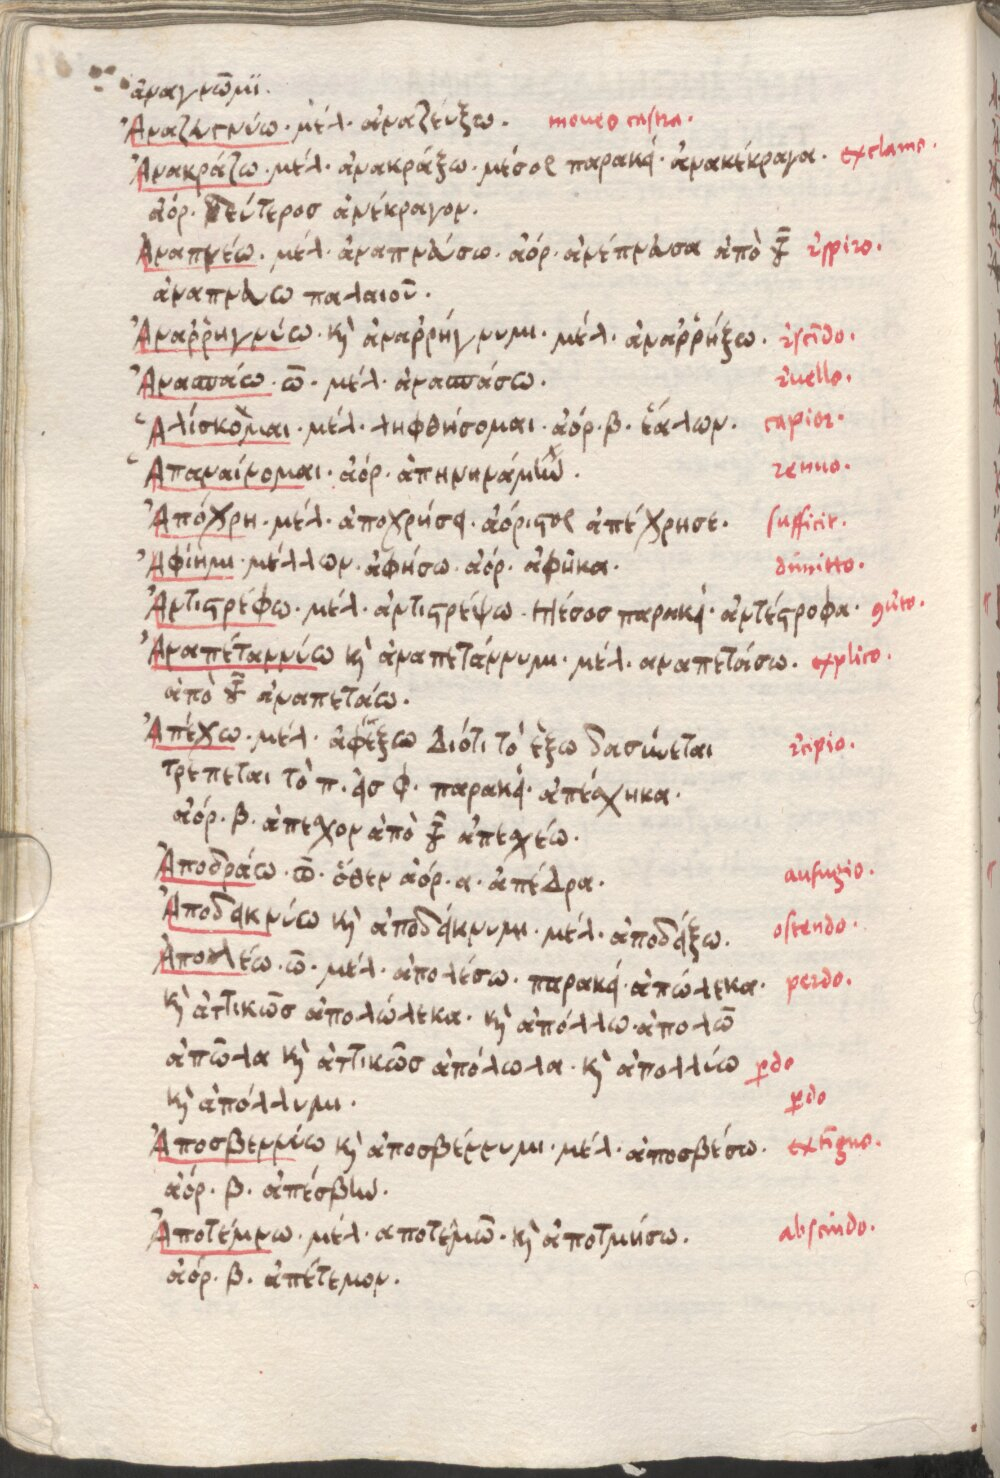 ἀναγνῶμι.
Ἀναζευγνύω · μέλ · ἀναζεύξω · moueo castra ·
Ἀνακράζω · μέλ · ἀνακράξω · μέσος παρακ · ἀνακέκραγα · exclamo ·
ἀόρ · δεύτερος ἀνέκραγον.
Ἀναπνέω · μέλ · ἀναπνεύσω · ἀόρ · ἀνέπνευσα ἀπὸ τοῦ respiro ·
ἀναπνεύω παλαιοῦ.
Ἀναῤῥηγνύω · καὶ ἀναῤῥήγνυμι · μέλ · ἀναῤῥήξω · rescindo ·
Ἀνασπάω · ῶ · μέλ · ἀνασπάσω · reuello ·
Ἁλίσκομαι · μέλ · ληφθήσομαι · ἀόρ · β · ἑάλων · capior ·
Ἀπαναίνομαι · ἀόρ · ἀπηνηνάμην · renuo ·
Ἀπόχρη · μέλ · ἀποχρήσει · ἀόριστος ἀπέχρησε · sufficit ·
Ἀφίημι · μέλλων · ἀφήσω · ἀόρ · ἀφῆκα · dimitto ·
Ἀντιστρέφω · μέλ · ἀντιστρέψω · μέσος παρακ · ἀντέστροφα ·
Ἀναπέταννύω καὶ ἀναπετάννυμι · μέλ · αναπετάσω · explico ·
ἀπὸ τοῦ ἀναπετάω.
Ἀπέχω · μέλ · ἀφέξω διότι τὸ ἕξω δασύνεται recipio ·
τρέπεται τὸ π · εἰς φ · παρακ · ἀπέσχηκα ·
ἀόρ · β · ἀπεσχον ἀπὸ τοῦ ἀπεσχέω.
Ἀποδράω · ῶ · ὅθεν ἀόρ · α · ἀπέδρα · aufugio ·
Ἀποδεικνύω καὶ ἀποδείκνυμι · μέλ · ἀποδείξω · ostendo ·
Ἀπολέω · ῶ · μέλ · ἀπολέσω · παρακ · ἀπώλεκα · perdo ·
καὶ ἀττικῶς ἀπολώλεκα · καὶ ἀπόλλω · ἀπολῶ
ἀπῶλα καὶ ἀττικῶς ἀπόλωλα · καὶ ἀπολλύω perdo
καὶ ἀπόλλυμι · perdo
Ἀποσβεννύω καὶ ἀποσβέννυμι · μέλ · ἀποσβέσω · extinguo ·
ἀόρ · β · ἀπέσβην.
Ἀποτέμνω · μέλ · αποτεμῶ · καὶ ἀποτμήσω · abscindo ·
ἀόρ · β · ἀπέτεμον.